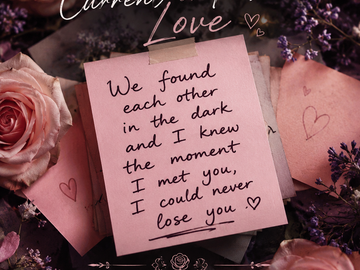 Love ♡
We found
each other
in the dark
and I knew
the moment
I met you,
I could never
lose you ♡